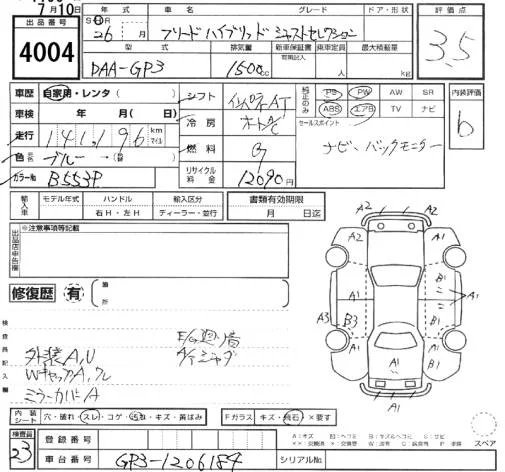 7月10日
出品番号
4004
年式 車名 グレード ドア・形状
S H R 26 月 フリードハイブリッド ジャストセレクション
型式 排気量 新車保証書 乗車定員 最大積載量
有 記入
DAA-GP3 1500cc 人 kg
評価点
3.5
車歴 自家用・レンタ( )
車検 年 月( 日)
走行 141,196 km マイル
色 ブルー
カラーNo B553P
シフト インパネAT
冷房 オートAC
燃料 G
リサイクル料金 12090円
純正のみ PS PW AW SR
ABS エアB TV ナビ
セールスポイント
ナビ、バックモニター
内装評価
b
輸入車 モデル年式 ハンドル 輸入区分
右H・左H ディーラー・並行
書類有効期限
月 日迄
出品店申告欄
※注意事項等記載
修復歴 有 箇所
検査員記入欄
外装A,U
WキャップA,クレ
ミラーカバーA
A2 A2 A1
A1
B1
A1
A3 B3
B1
A1
A1
A1
内装シート 穴・破れ・スレ・コゲ・汚れ・キズ・黄ばみ
Fガラス キズ・飛石 ×要す
スペア
検査員
23
登録番号
車台番号 GP3-1206184 シリアルNo.